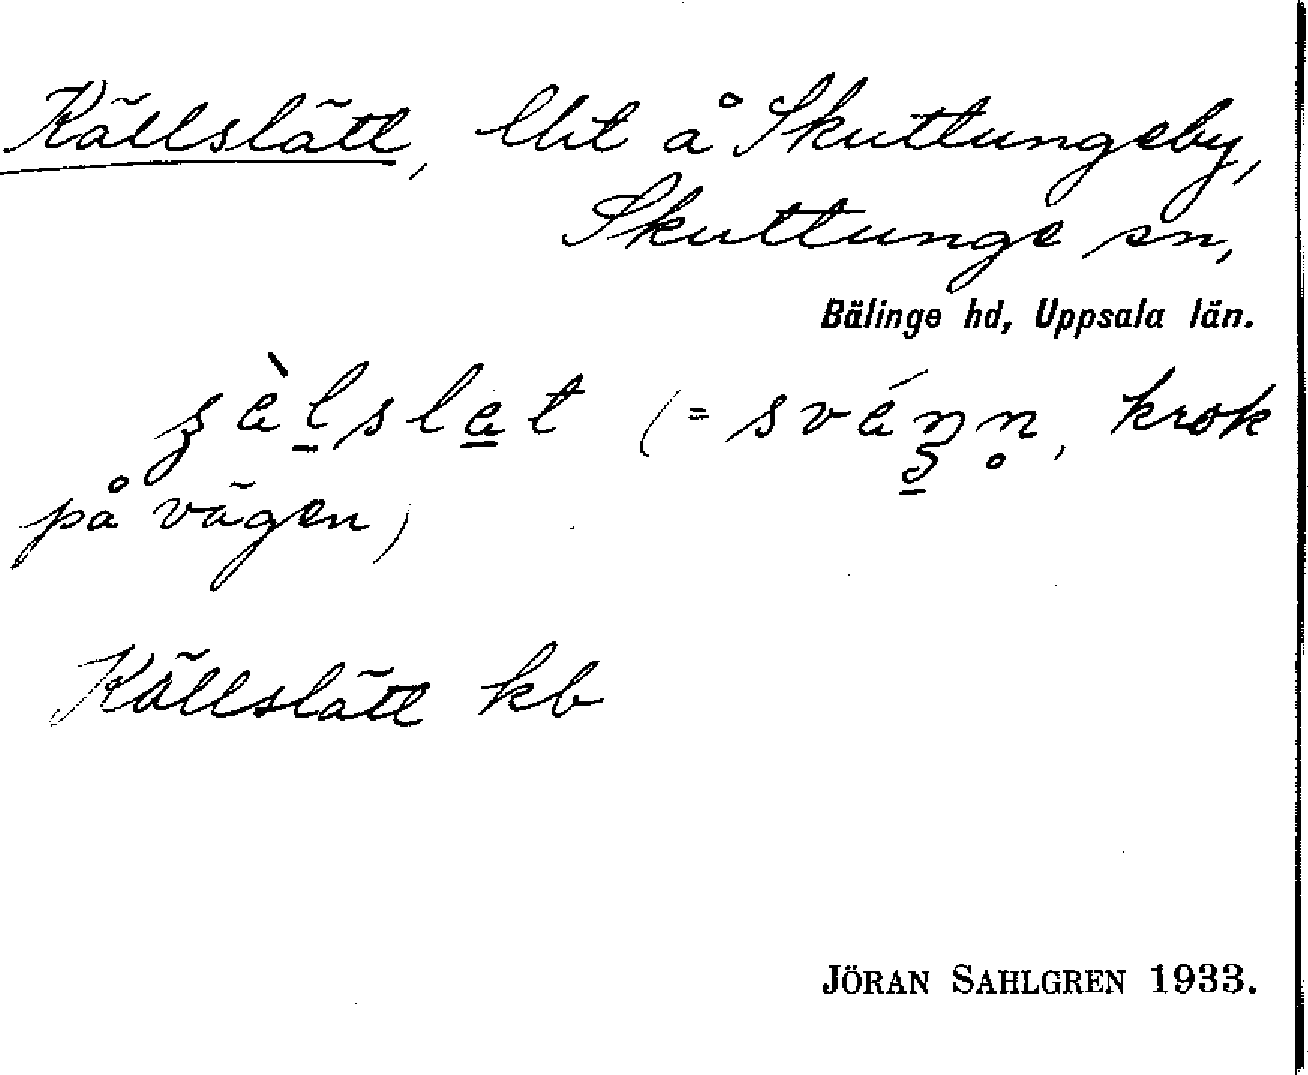 Källslätt, lht å Skuttungeby,
Skuttunge sn,
Bälinge hd, Uppsala län.
(= krok
på vägen)
Källslätt kb
JÖRAN SAHLGREN 1933.